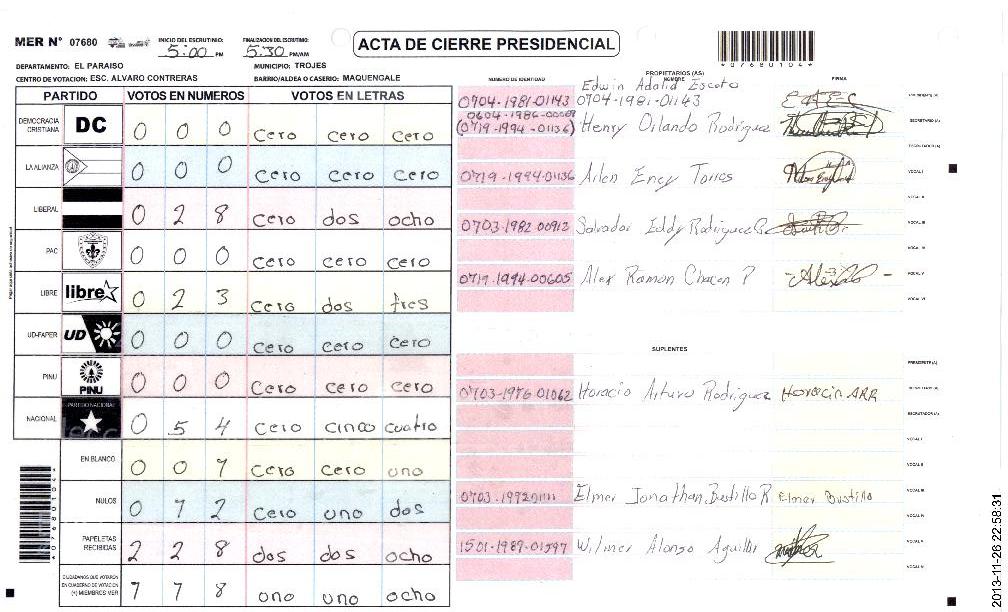 MER Nº 07680 INICIO DEL ESCRUTINIO: 5:00 PM FINALIZACION DEL ESCRUTINIO: 5:30 PM/AM
ACTA DE CIERRE PRESIDENCIAL
*07680104*
DEPARTAMENTO: EL PARAISO MUNICIPIO: TROJES
CENTRO DE VOTACION: ESC. ALVARO CONTRERAS BARRIO/ALDEA O CASERIO: MAQUENGALE
PARTIDO VOTOS EN NUMEROS VOTOS EN LETRAS
DEMOCRACIA CRISTIANA DC 0 0 0 cero cero cero
LA ALIANZA 0 0 0 cero cero cero
LIBERAL 0 2 8 cero dos ocho
PAC 0 0 0 cero cero cero
LIBRE libre 0 2 3 cero dos tres
UD-FAPER UD 0 0 0 cero cero cero
PINU PINU 0 0 0 cero cero cero
NACIONAL PARTIDO NACIONAL 0 5 4 cero cinco cuatro
EN BLANCO 0 0 cero cero uno
NULOS 0 2 cero uno dos
PAPELETAS RECIBIDAS 2 2 8 dos dos ocho
CIUDADANOS QUE VOTARON
EN CUADERNO DE VOTACION
(+) MIEMBROS MER 8 uno uno ocho
NUMERO DE IDENTIDAD PROPIETARIOS (AS) NOMBRE FIRMA
Edwin Adalid Escoto
0704-1981-01143 0704-1981-01143
(0719-1994-01136) Henry Orlando Rodriguez SECRETARIO (A)
ESCRUTADOR (A)
0719-1994-01136 Arlen Eney Torres VOCAL I
VOCAL II
0703-1982-00912 Salvador Eddy Rodriguez VOCAL III
VOCAL IV
0719-1994-00605 Alex Ramon Chacon P VOCAL V
VOCAL VI
SUPLENTES
PRESIDENTE (A)
0703-1976-01062 Horacio Arturo Rodriguez Horacio ARR SECRETARIO (A)
ESCRUTADOR (A)
VOCAL I
VOCAL II
Elmer Jonathan Bustillo R Elmer Bustillo VOCAL III
VOCAL IV
1501-1989-01597 Wilmer Alonso Aguilar VOCAL V
VOCAL VI
*07680104*
2013-11-26 22:58:31